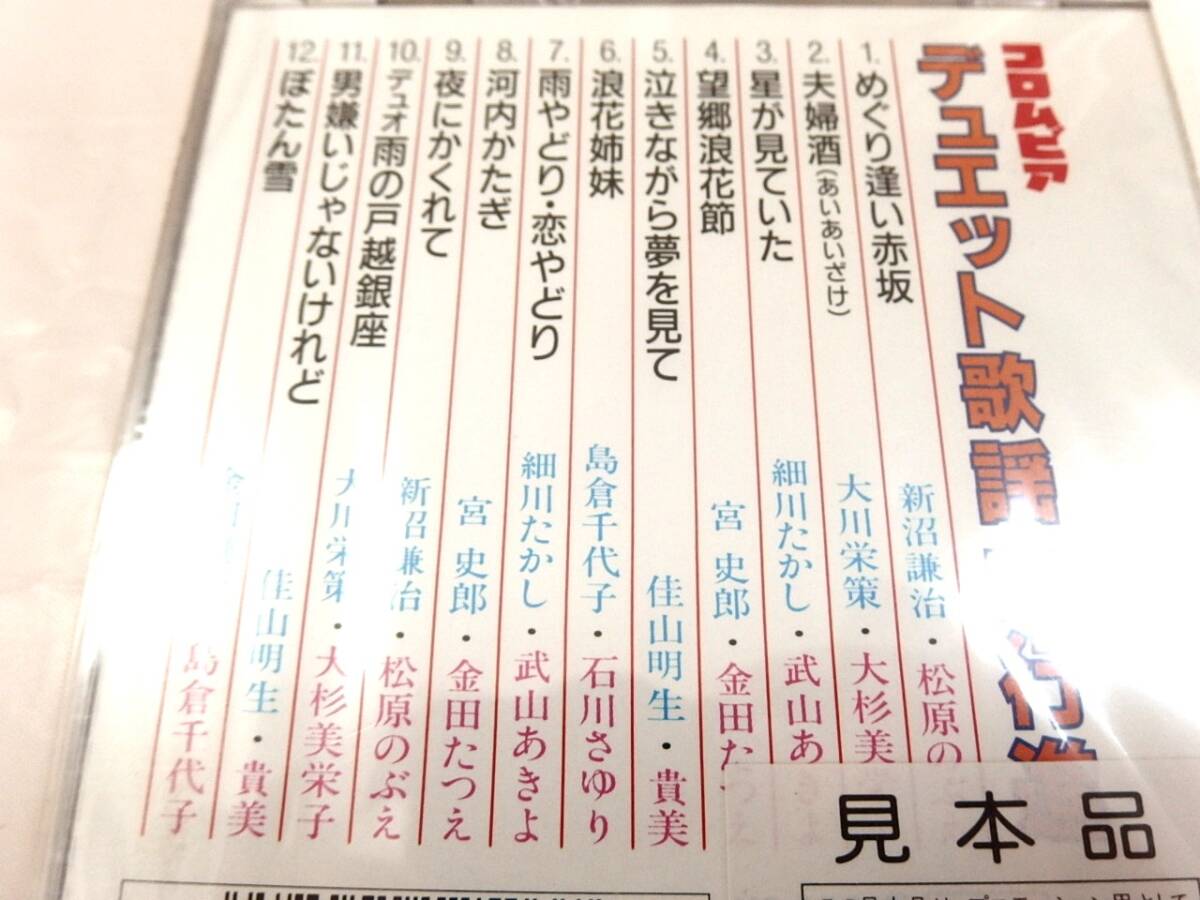 コロムビア
デュエット歌謡
1. めぐり逢い赤坂 新沼謙治・松原の
2. 夫婦酒(あいあいざけ) 大川栄策・大杉美
3. 星が見ていた 細川たかし・武山あ
4. 望郷浪花節 宮 史郎・金田た
5. 泣きながら夢を見て 佳山明生・貴美
6. 浪花姉妹 島倉千代子・石川さゆり
7. 雨やどり・恋やどり 細川たかし・武山あきよ
8. 河内かたぎ 宮 史郎・金田たつえ
9. 夜にかくれて 新沼謙治・松原のぶえ
10. デュオ雨の戸越銀座 大川栄策・大杉美栄子
11. 男嫌いじゃないけれど 佳山明生・貴美
12. ぼたん雪 島倉千代子
見本品